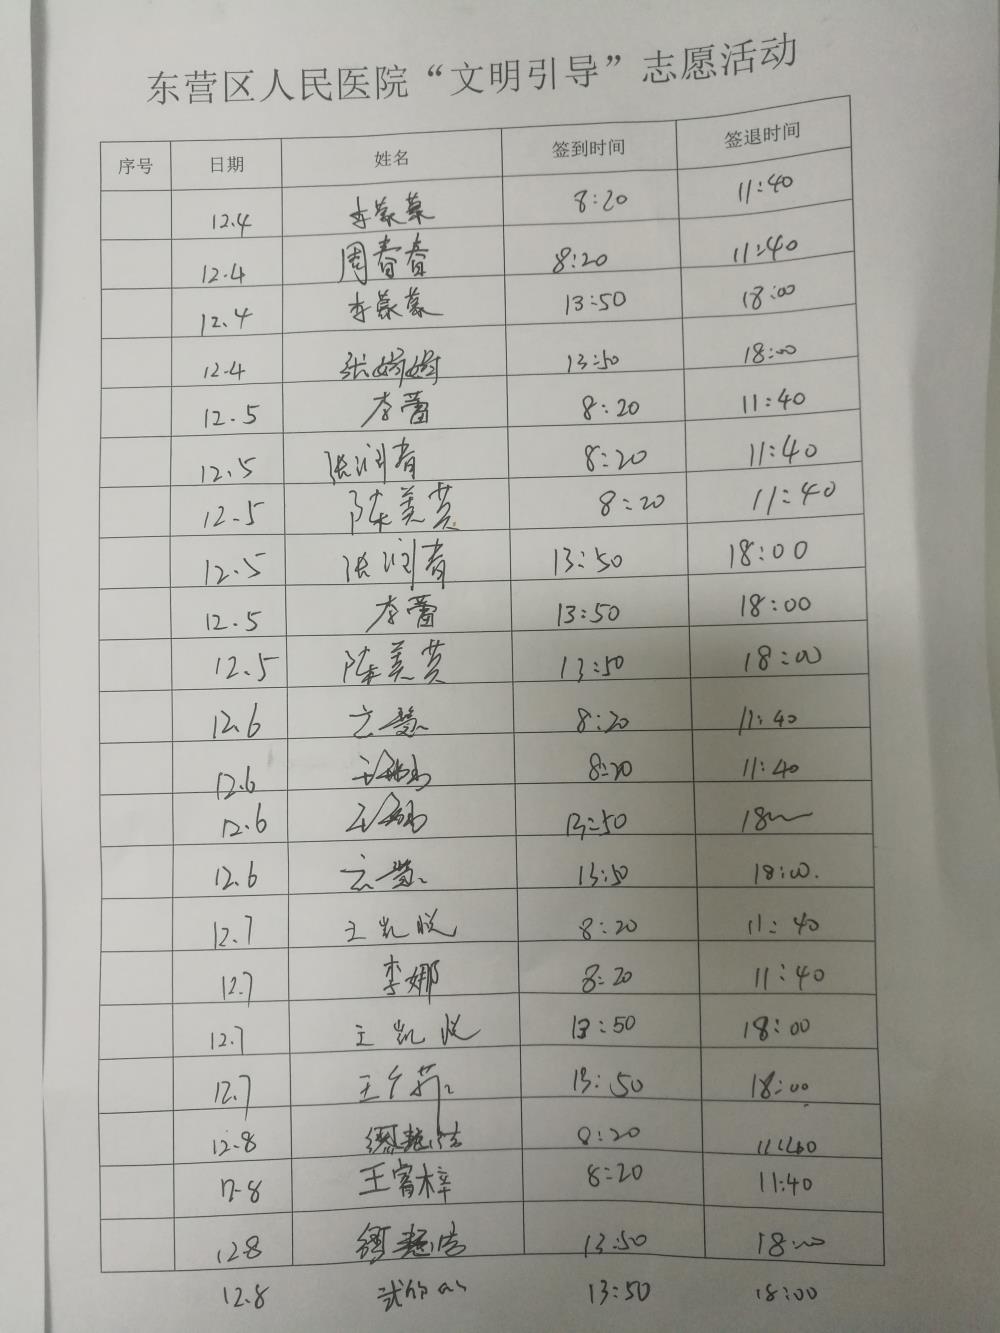 东营区人民医院“文明引导”志愿活动
序号 日期 姓名 签到时间 签退时间
12.4 李蒙蒙 8:20 11:40
12.4 周春春 8:20 11:40
12.4 李蒙蒙 13:50 18:00
12.4 张婷婷 13:50 18:00
12.5 李蕾 8:20 11:40
12.5 张润青 8:20 11:40
12.5 陈美英 8:20 11:40
12.5 张润青 13:50 18:00
12.5 李蕾 13:50 18:00
12.5 陈美英 13:50 18:00
12.6 8:20 11:40
12.6 8:20 11:40
12.6 13:50 18
12.6 13:50 18:00.
12.7 王凯悦 8:20 11:40
12.7 李娜 8:20 11:40
12.7 王凯悦 13:50 18:00
12.7 13:50 18:00
12.8 8:20 11:40
12-8 王宵梓 8:20 11:40
12.8 13:50 18:00
12.8 13:50 18:00